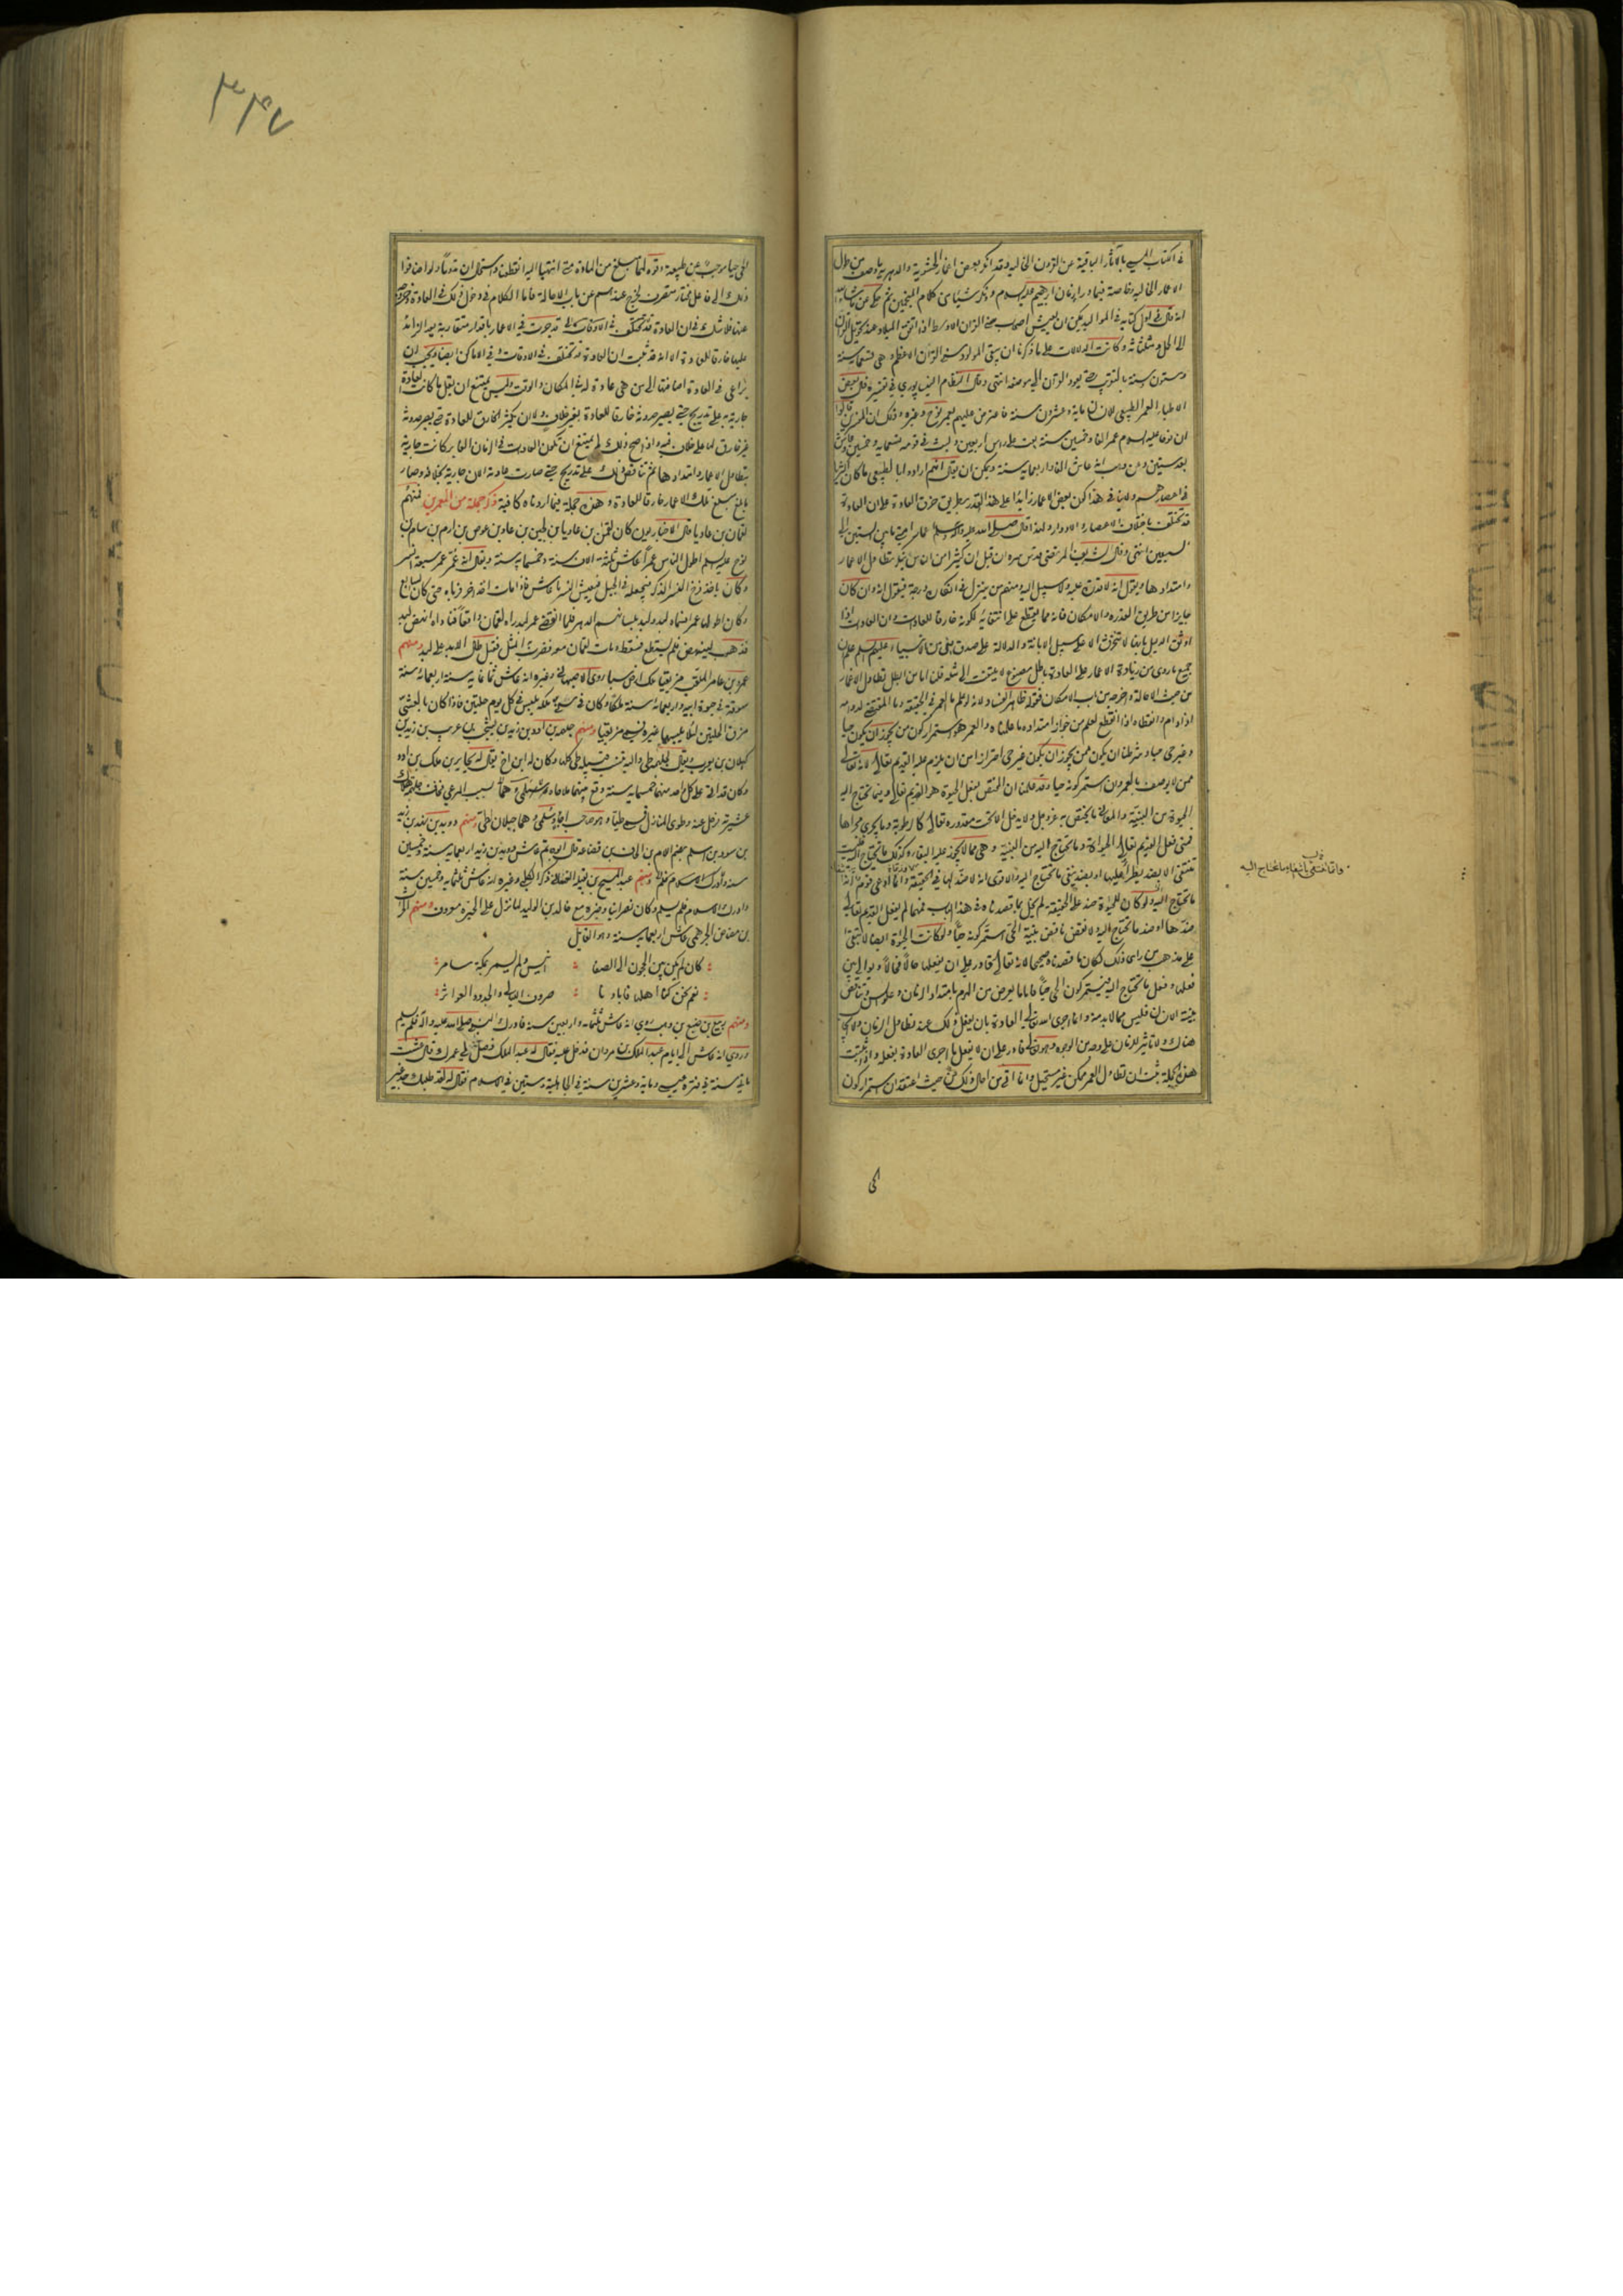 في الكتاب المسمى بالآثار الباقية عن القرون الخالية وقد انكر بعض اغمار الحشوية والدهرية ما وصف من طول
الاعمار الخالية وخاصة فيما وراء زمان ابرهيم عليه السلام وذكر شيئا من كلام المنجمين ثم حكى عن ماشاء الله
انه قال في اول كتابه في المواليد يمكن ان يعيش اصحاب سني القران الاوسط اذا اتفق الميلاد عند تحويل القران
الى الحمل ومثلثاته وكانت الدلالات على ما ذكرنا ان يبقى المولود سني القران الاعظم وهي تسعمائة سنة
وستون سنة بالتقريب حتى يعود القران الى موضعه انتهى وقال النظام النيسابوري في تفسيره قال بعض
الاطباء العمر الطبيعي للانسان مائة وعشرون سنة فاعترض عليهم بعمر نوح وغيره وذلك ان المفسرين قالوا
ان نوحا عليه السلام عمر الفا وخمسين سنة بعث على راس اربعين ولبث في قومه تسعمائة وخمسين وعاش
بعده ستين وعن وهب انه عاش الفا واربعمائة سنة ويمكن ان يقال انهم ارادوا بالطبيعي ما كان اكثريا
في اعصارهم ولا ينافي هذا كون بعض الاعمار زايدا على هذا القدر بطريق خرق العادة على ان العادة
قد تختلف باختلاف الاعصار والادوار ولهذا قال صلى الله عليه وآله وسلم اعمار امتي ما بين الستين الى
السبعين انتهى وقال الشريف المرتضى قدس سره ان قيل ان كثيرا من الناس ينكر تطاول الاعمار
وامتدادها ويقول انه لا قدرة عليه ولا سبيل اليه ومنهم من ينزل في انكاره درجة فيقول انه وان كان
جايزا من طريق القدرة والامكان فانه مما يقطع على انتفائه لكونه خارقا للعادات وان العادات اذا
اوثق الدليل بانها لا تنخرق الا على سبيل الابانة والدلالة على صدق نبي من الانبياء عليهم السلم علم ان
جميع ما روي من زيادة الاعمار على العادة باطل مصنوع لا يلتفت الى مثله قلنا اما من ابطل تطاول الاعمار
من حيث الاحالة واخرجه من باب الامكان فقوله ظاهر الفساد لانه لو علم ما العمر في الحقيقة وما المقتضي لدوامه
اذا دام وانقطاعه اذا انقطع لعلم من جواز امتداده ما علمناه والعمر هو استمرار كون من يجوز ان يكون حيا
وغير حي حيا وشرطنا ان يكون ممن يجوز ان يكون غير حي احترازا من ان يلزم عليه القديم تعالى لانه تعالى
ممن لا يوصف بالعمر وان استمر كونه حيا وقد علمنا ان المختص بفعل الحيوة هو القديم تعالى وفيما تحتاج اليه
الحيوة من البنية والمعاني ما يختص به عز وجل ولا يدخل الا تحت مقدوره تعالى كالرطوبة وما يجري مجراها
فمتى فعل القديم تعالى الحياة وما تحتاج اليه من البنية وهي مما لا يجوز عليه البقاء وكذلك ما تحتاج اليه فليست
تنتفي الا بضد يطرأ عليها او بضد ينفي ما تحتاج اليه والاقوى انه لا ضد لها في الحقيقة وانما ادعى قوم انه
ما تحتاج اليه ولو كان للحياة ضد على الحقيقة لم يخل بما قصدناه في هذا الباب فمهما لم يفعل القديم تعالى
ضدها او ضد ما تحتاج اليه ولا نقض ناقض بنية الحي استمر كونه حيا ولو كانت الحياة ايضا لا تبقى
على مذهب من راى ذلك لكان ما قصدناه صحيحا لانه تعالى قادر على ان يفعلها حالا فحالا ويوالي بين
فعلها وفعل ما تحتاج اليه فيستمر كون الحي حيا فاما ما يعرض من الهرم بامتداد الزمان وعلو السن وتناقض
بنية الانسان فليس مما لا بد منه وانما اجرى الله تعالى العادة بان يفعل ذلك عند تطاول الزمان ولا ايجاب
هناك ولا تاثير للزمان على وجه من الوجوه وهو تعالى قادر على ان لا يفعل ما اجرى العادة بفعله واذا ثبتت
هذه الجملة ثبت ان تطاول العمر ممكن غير مستحيل وانما اتى من احال ذلك من حيث اعتقد ان استمرار كون
وانما تنتفي بانتفاء ما تحتاج اليه
٣٤٧
الحي حيا موجب عن طبيعة وقوة لهما مبلغ من المادة متى انتهتا اليه انقطعتا واستحال ان تدوما ولو اضافوا
ذلك الى فاعل مختار متصرف لخرج عندهم من باب الاحالة فاما الكلام في دخول ذلك في العادة او خروجه
عنها فلا شك في ان العادة قد تختلف في الاوقات بل قد جرت في الاعمار باقدار متقاربة يعد الزائد
عليها خارقا للعادة الا انه قد ثبت ان العادة قد تختلف في الاوقات وفي الاماكن ايضا ويجب ان
يراعى في العادة اضافتها الى من هي عادة له في المكان والوقت وليس يمتنع ان يقل ما كانت العادة
جارية به على تدريج حتى يصير حدوثه خارقا للعادة بغير خلاف ولا ان يكثر الخارق للعادة حتى يصير حدوثه
غير خارق لها على خلاف فيه واذا صح ذلك لم يمتنع ان تكون العادات في الزمان الغابر كانت جارية
بتطاول الاعمار وامتدادها ثم تناقص ذلك على تدريج حتى صارت عادتنا الان جارية بخلافه وصار
ما بلغ مبلغ تلك الاعمار خارقا للعادة وهذه جملة فيما اردناه كافية ذكر جملة من المعمرين فمنهم
لقمان بن عاديا قال الاخباريون كان لقمن بن عاديا بن لجين بن عاد بن عوص بن ارم بن سام بن
نوح عليه السلم اطول الناس عمرا عاش ثلثة آلاف سنة وخمسمائة سنة ويقال انه عمر عمر سبعة انسر
وكان ياخذ فرخ النسر الذكر فيجعله في الجبل فيعيش النسر ما عاش فاذا مات اخذ اخر فرباه حتى كان السابع
وكان اطولها عمرا فسماه لبدا ولبد بلسانهم الدهر فلما انقضى عمر لبد راه لقمان واقعا فناداه انهض لبد
فذهب لينهض فلم يستطع فسقط ومات لقمان معه فضرب المثل فقيل طال الابد على لبد ومنهم
عمرو بن عامر الملقب مزيقيا ملك ارض سبا روى الاصبهاني وغيره انه عاش ثمانمائة سنة اربعمائة سنة
سوقة في حيوة ابيه واربعمائة سنة ملكا وكان في سني ملكه يلبس في كل يوم حلتين فاذا كان بالعشي
مزق الحلتين لئلا يلبسهما غيره فسمي مزيقيا ومنهم جلهمة بن ادد بن زيد بن يشجب بن عريب بن زيد بن
كهلان بن يعرب ويقال لجلهمة طي واليه تنسب قبيلة طي كلها وكان له ابن اخ يقال له يحابر بن ملك بن ادد
وكان قد اتى على كل واحد منهما خمسمائة سنة وقع بينهما ملاحاة بسبب المرعى فخاف جلهمة هلاك
عشيرته فرحل عنه وطوى المنازل فسمي طيا وهو صاحب اجا وسلمى وهما جبلان لطي ومنهم دويد بن نهد بن زيد
بن سود بن اسلم بضم اللام بن الحاف بن قضاعة قال ابو حاتم عاش دويد بن زيد اربعمائة سنة وخمسين
سنة وادرك الاسلام ومنهم عبد المسيح بن بقيلة الغساني ذكر الكلبي وغيره انه عاش ثلثمائة وخمسين سنة
وادرك الاسلام فلم يسلم وكان نصرانيا وخبره مع خالد بن الوليد لما نزل على الحيرة معروف ومنهم الحارث
بن مضاض الجرهمي عاش اربعمائة سنة وهو القائل
كان لم يكن بين الحجون الى الصفا انيس ولم يسمر بمكة سامر
نعم نحن كنا اهلها فابادنا صروف الليالي والجدود العواثر
ومنهم ربيع بن ضبع بن وهب روي انه عاش ثلثمائة واربعين سنة فادرك النبي صلى الله عليه وآله فلم يسلم
وروي انه عاش الى ايام عبد الملك بن مروان فدخل عليه فقال له عبد الملك فصل لي عمرك فقال عشت
مائتي سنة في فترة عيسى ومائة وعشرين سنة في الجاهلية وستين في الاسلام فقال له لقد طلبك جد غير